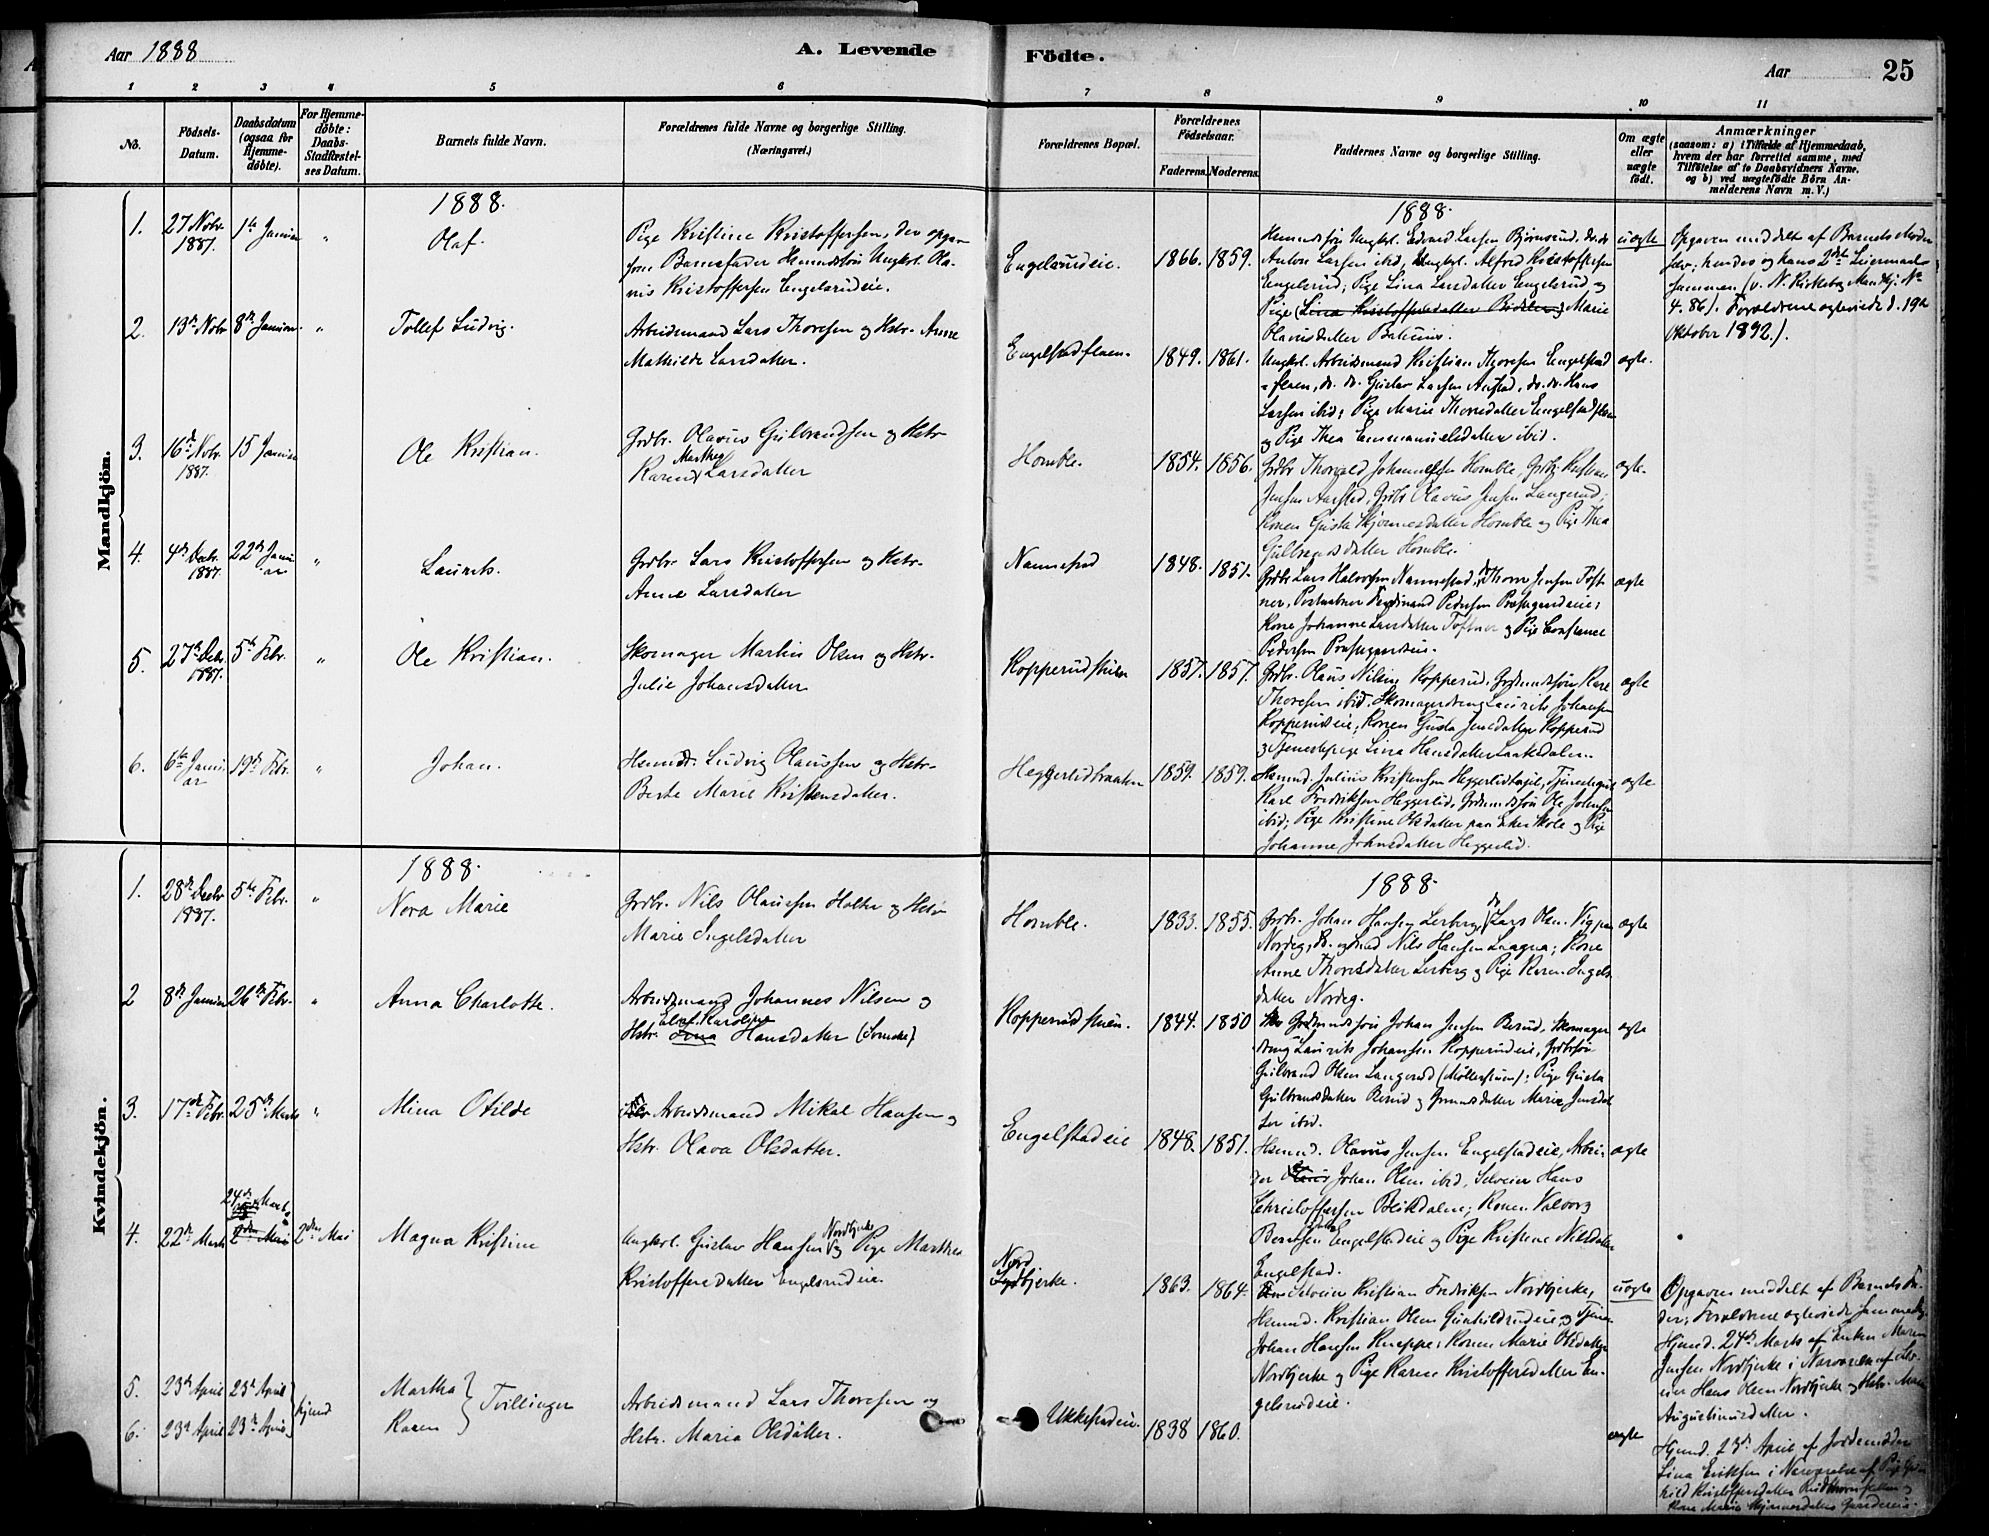 Aar 1888
A. Levende
Födte.
Aar
25
1 2 3 4 5 6 7 8 9 10 11
No.
Födsels-
Datum.
Daabsdatum
(ogsaa for
Hjemme-
döbte).
For Hjemme-
döbte:
Daabs-
Stadfæstel-
ses Datum.
Barnets fulde Navn.
Forældrenes fulde Navne og borgerlige Stilling.
(Næringsvei.)
Forældrenes Bopæl.
Forældrenes
Födselsaar.
Faderens. Moderens.
Faddernes Navne og borgerlige Stilling.
Om ægte
eller
uægte
født.
Anmærkninger
(saasom: a) i Tilfælde af Hjemmedaab,
hvem der har forrettet samme, med
Tilföielse af to Daabsvidners Navne.
og b) ved uægtefödte Börn An-
melderens Navn m. V.)
Mandkjön.
1888.
1888.
1. 27 Novbr 1887. 1ste Januar " Olaf.
Pige Kristine Kristoffersen, der opgav
som Barnefader Husmandssøn Ungkrl. Ola-
vis Kristoffersen Engelsrudeie.
Engelsrudeie. 1866. 1859.
Husmandssøn Ungkrl. Edvard Larsen Bjørnsrud, do. do.
Anton Larsen ibid, Ungkrl. Alfred Kristoffersen
Engelsrud; Pige Lina Larsdatter Engelsrud og
Marie
uægte
Opgaven meddelt af Barnets Moder
Forældrene ægteviede d. 19de
Oktober 1892).
2. 13de Novbr 8de Januar " Tollef Ludvig.
Arbeidsmand Lars Thoresen og Hstr. Anne
Mathilde Larsdatter.
Engelstadflaen. 1849. 1861.
Ungkrl. Arbeidsmand Kristian Thoresen Engelstad
-flaen, do. do. Gustav Larsen Aarstad, do. do. Hans
Larsen ibid; Pige Marie Thoresdatter Engelstadflaen
og Pige Thea Emmanuelsdatter ibid.
ægte.
3. 16de Novbr 1887. 15 Januar Ole Kristian.
Grdbr. Olavus Gulbrandsen og Hstr
Karen Marthea Larsdatter
Homble. 1854. 1856.
Grdbr Thorvald Johannessen Homble, Grdbr. Kristian
Jensen Aarstad, Grdbr Olavus Jensen Langerud;
Konen Gusta Hjønnesdatter Homble og Pige Thea
Gulbrandsdatter Homble.
ægte.
4. 4de Decbr. 1887. 22de Janu ar " Laurits.
Grdbr. Lars Kristoffersen og Hstr.
Anne Larsdatter
Nannestad 1848. 1851.
Grdbr Lars Halvorsen Nannestad, do Thore Jensen Toft-
ner, Postaabner Ferdinand Pedersen Præstegaardseie;
Kone Johanne Larsdatter Toftner og Pige Constance
Pedersen Præstegaardseie.
ægte
5. 27de Decbr. 1887. 5te Febr. " Ole Kristian.
Skomager Martin Olsen og Hstr.
Julie Johansdatter
Kopperudstuen 1857. 1857.
Grdbr. Olaus Nilsen Kopperud, Grdmandssøn Kare
Thoresen ibid. Skomagerdreng Laurits Johansen
Kopperudeie; Konen Gusta Jensdatter Kopperud
og Tjenestepige Lina Hansdatter Laakedalen.
ægte
6. 6te Janu ar 19de Febr. " Johan.
Husmd. Ludvig Olaussen og Hstr.
Berte Marie Kristensdatter.
Heggerudbraaten 1859. 1859.
Husmd. Julius Kristensen
Karl Fredriksen Heggerlid, Grdmandssøn Ole Johnsen
ibid; Pige Kristine Olsdatter paa Eker Skole og Pige
Johanne Johnsdatter Heggerlid.
ægte
Kvindekjön.
1888.
1888.
1. 28de Decbr 1887. 5te Febr. " Nora Marie
Grdbr. Nils Olaussen Holter og Hstr
Marie Ingelsdatter
Homble. 1833. 1855.
Grdbr. Johan Hansen Lerberg, do Lars Olsen Vig paa
Nordeg, Nils Hansen Laagna; Kone
Anne Thoresdatter Lerberg og Pige Karen Ingels-
datter Nordeg.
ægte
2 8de Januar 26de Febr. " Anna Charlotte.
Arbeidsmand Johannes Nilsen og
Hstr. Elise Karoline Lina Hansdatter (Svenske)
Kopperudstuen. 1844. 1850
Grdmandssøn Johan Jensen Berud, Skomager
dreng Laurits Johansen Kopperudeie, Grdbrsøn
Gulbrand Olsen Langerud (Møllerstuen); Pige Gusta
Gulbrandsdatter Berud og Grmandsdatter Marie Jensdat-
ter ibid.
ægte
3. 17de Febr. 25de Marts " Mina Otilde
Arbeidsmand Mikal Hansen og
Hstr. Olava Olsdatter.
Engelstadeie 1848. 1851.
Husmd. Olavus Jensen Engelstadeie, Arbei-
der Johan Olsen ibid, Selveier Hans
Christoffersen Blekdalen; Konen Valborg
Berntsen Engelstadeie og Pige Kristine Nilsdatter
Engelstad.
ægte
4. 22de Marts 24de Marts 2den Mai 2den Mai Magna Kristine
Ungkrl. Gustav Hansen Nordbjerke og Pige Marthea
Kristoffersdatter Engelsrudeie.
Nord
Sydbjerke. 1863. 1864.
Selveier Kristian Fredriksen Nordbjerke,
Husmd. Kristian Olsen Gunhildsrudeie og Tjener
Johan Hansen Kneppe; Konen Marie Olsdatter
Nordbjerke og Pige Karen Kristoffersdatter En-
gelsrudeie.
uægte
Opgaven meddelt af Barnets Fa-
der; Forældrene ægteviede samme dag.
Hjemd. 24de Marts af Enken Maren
Jensen Nordbjerke i Nærværelse af Selv-
eier Hans Olsen Nordbjerke og Hstr. Maren
Augustinusdatter.
5. 23de April 23de April Martha } Tvillinger
6. 23de April 23de April } hjemd Karen
Arbeidsmand Lars Thoresen og
Hstr. Maria Olsdatter.
Ukkestadeie. 1838 1860.
ægte
Hjemd. 23de April af Jordemoder
Lina Eriksen i Nærværelse af Pige
Kristoffersdatter
Kone Marie